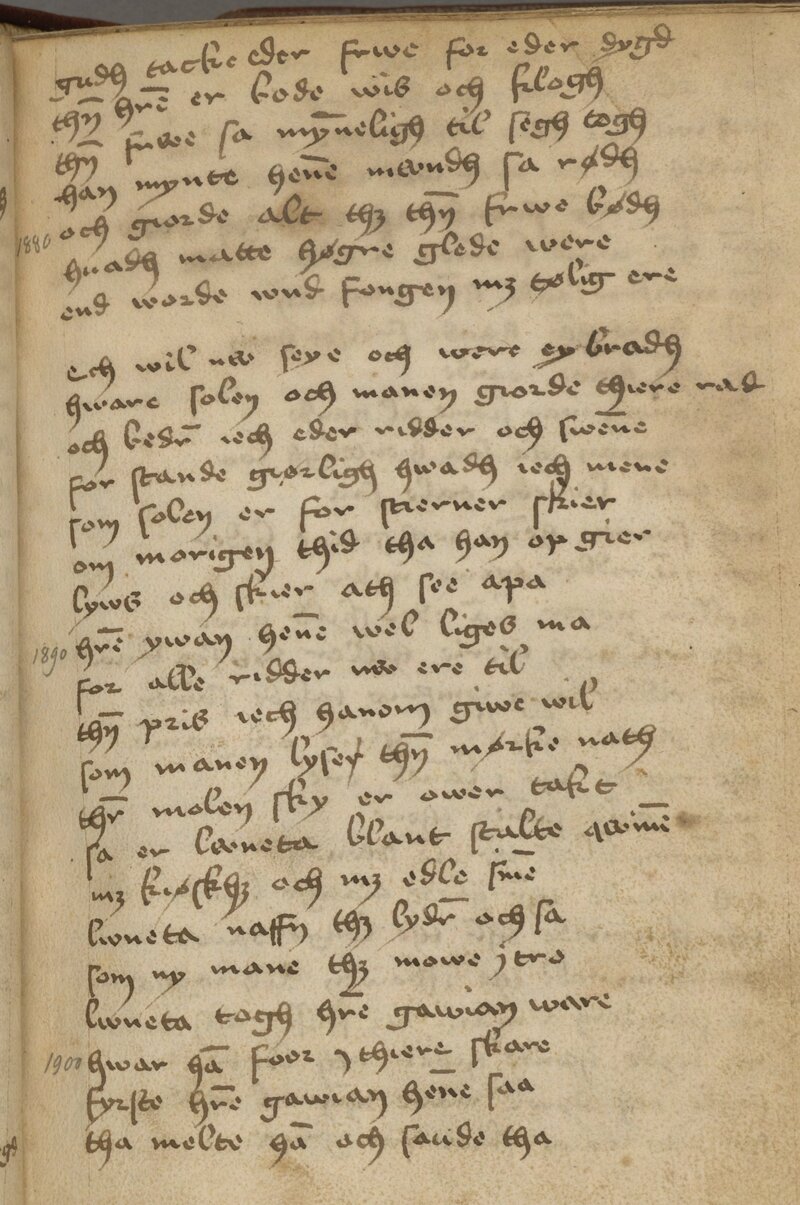 gudh tacke eder frwe for eder dygd
thn̄ hrē er bode wis och klogh
thn̄ frwe sa myn̄eligh til segh togh
han mynte hen̄e mwndh sa rødh
1880 och giorde alt thꝫ thn̄ frwe bødh
huadh matte høgre glede were
end worde wnd fongen mꝫ tølig ere
ech wil nw seye och were ey bradh
hware solen och manen giorde thiere rad
och bedr̄ iech eder ridder och swen̄e
for stande giørligh hwadh iech mene
som solen er for stierner skier
om morigen thid tha han op gier
lyws och skier ath see apa
1890 hrē ywan hen̄e wel liges ma
for alle ridder nw ere til
thn̄ pris iech hanom giwe wil
som manen lyser thn̄ mørke nath
thr̄ molen sky er ower takt
sa er lwneta blant stalte qwinē
mꝫ kiøskhꝫ och mꝫ edle sinē
lwneta naffn thꝫ lydr̄ och sa
som ny mane thꝫ mowe j tro
lwneta togh hrē gawian ware
1900 hwar hā foor j thiere skare
fyrste hrē gawian hen̄e saa
tha melte hā och saude tha